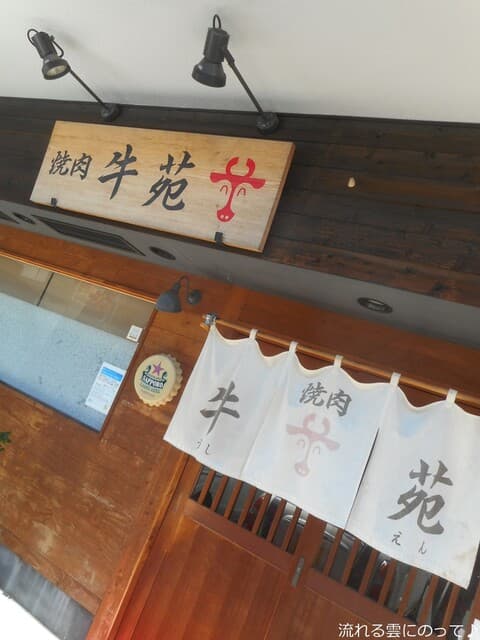 焼肉 牛苑
SAPPORO
焼肉
牛 苑
うし えん
流れる雲にのって♪